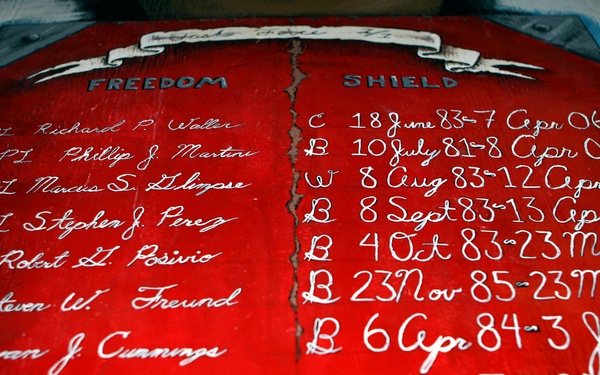 Task Force 3/1
FREEDOM SHIELD
Richard P. Waller C 18 June 83-7 Apr 06
Phillip J. Martini B 10 July 81-8 Apr 0
Marcus S. Glimpse W 8 Aug 83-12 Apr
Stephen J. Perez B 8 Sept 83-13 Ap
Robert G. Posivio B 4 Oct 83-23 M
teven W. Freund B 23 Nov 85-23 M
van J. Cummings B 6 Apr 84-3 J